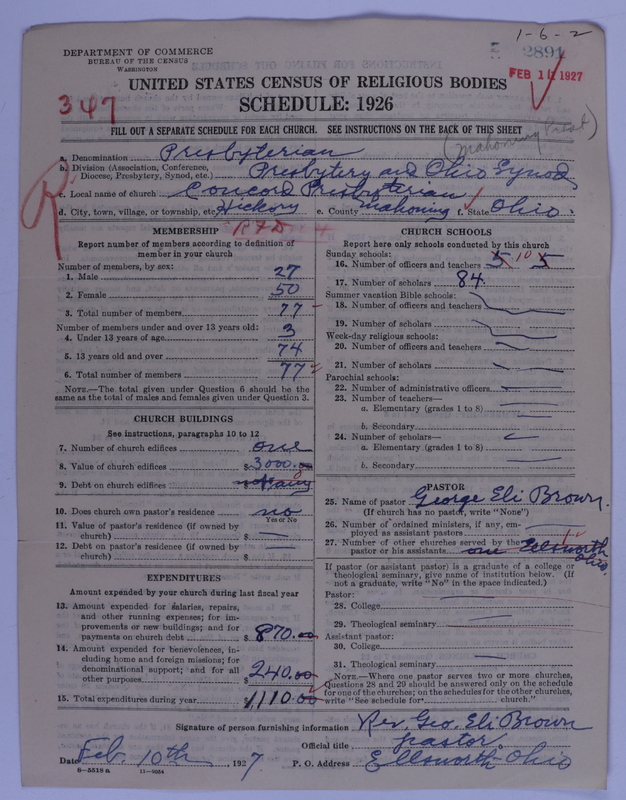 1-6-2
DEPARTMENT OF COMMERCE
BUREAU OF THE CENSUS
WASHINGTON
2891
FEB 1 1927
UNITED STATES CENSUS OF RELIGIOUS BODIES
347
SCHEDULE: 1926
FILL OUT A SEPARATE SCHEDULE FOR EACH CHURCH. SEE INSTRUCTIONS ON THE BACK OF THIS SHEET
(Mahoning Presb)
a. Denomination Presbyterian
b. Division (Association, Conference, Diocese, Presbytery, Synod, etc.) Presbytery and Ohio Synod
c. Local name of church Concord Presbyterian
d. City, town, village, or township, etc. Hickory e. County Mahoning f. State Ohio.
R
MEMBERSHIP RFD 4
Report number of members according to definition of
member in your church
Number of members, by sex:
1. Male 27
2. Female 50
3. Total number of members 77
Number of members under and over 13 years old:
4. Under 13 years of age 3
5. 13 years old and over 74
6. Total number of members 77
NOTE.—The total given under Question 6 should be the
same as the total of males and females given under Question 3.
CHURCH BUILDINGS
See instructions, paragraphs 10 to 12
7. Number of church edifices one
8. Value of church edifices $3000.00
9. Debt on church edifices $ not any
10. Does church own pastor's residence? no
Yes or No
11. Value of pastor's residence (if owned by
church) $
12. Debt on pastor's residence (if owned by
church) $
EXPENDITURES
Amount expended by your church during last fiscal year
13. Amount expended for salaries, repairs,
and other running expenses; for im-
provements or new buildings; and for
payments on church debt $870.00
14. Amount expended for benevolences, in-
cluding home and foreign missions; for
denominational support; and for all
other purposes $240.00
15. Total expenditures during year 1110.00
CHURCH SCHOOLS
Report here only schools conducted by this church
Sunday schools:
16. Number of officers and teachers 5 10 5
17. Number of scholars 84
Summer vacation Bible schools:
18. Number of officers and teachers
19. Number of scholars
Week-day religious schools:
20. Number of officers and teachers
21. Number of scholars
Parochial schools:
22. Number of administrative officers
23. Number of teachers—
a. Elementary (grades 1 to 8)
b. Secondary
24. Number of scholars—
a. Elementary (grades 1 to 8)
b. Secondary
PASTOR
25. Name of pastor George Eli Brown.
(If church has no pastor, write "None")
26. Number of ordained ministers, if any, em-
ployed as assistant pastors
27. Number of other churches served by the
pastor or his assistants one Ellsworth Ohio.
If pastor (or assistant pastor) is a graduate of a college or
theological seminary, give name of institution below. (If
not a graduate, write "No" in the space indicated.)
Pastor:
28. College
29. Theological seminary
Assistant pastor:
30. College
31. Theological seminary
NOTE.—Where one pastor serves two or more churches,
Questions 28 and 29 should be answered only on the schedule
for one of the churches; on the schedules for the other churches,
write "See schedule for church."
Signature of person furnishing information Rev. Geo. Eli Brown
Official title pastor.
Date Feb. 10th, 1927 P. O. Address Ellsworth Ohio
8-5518 a 11-9054